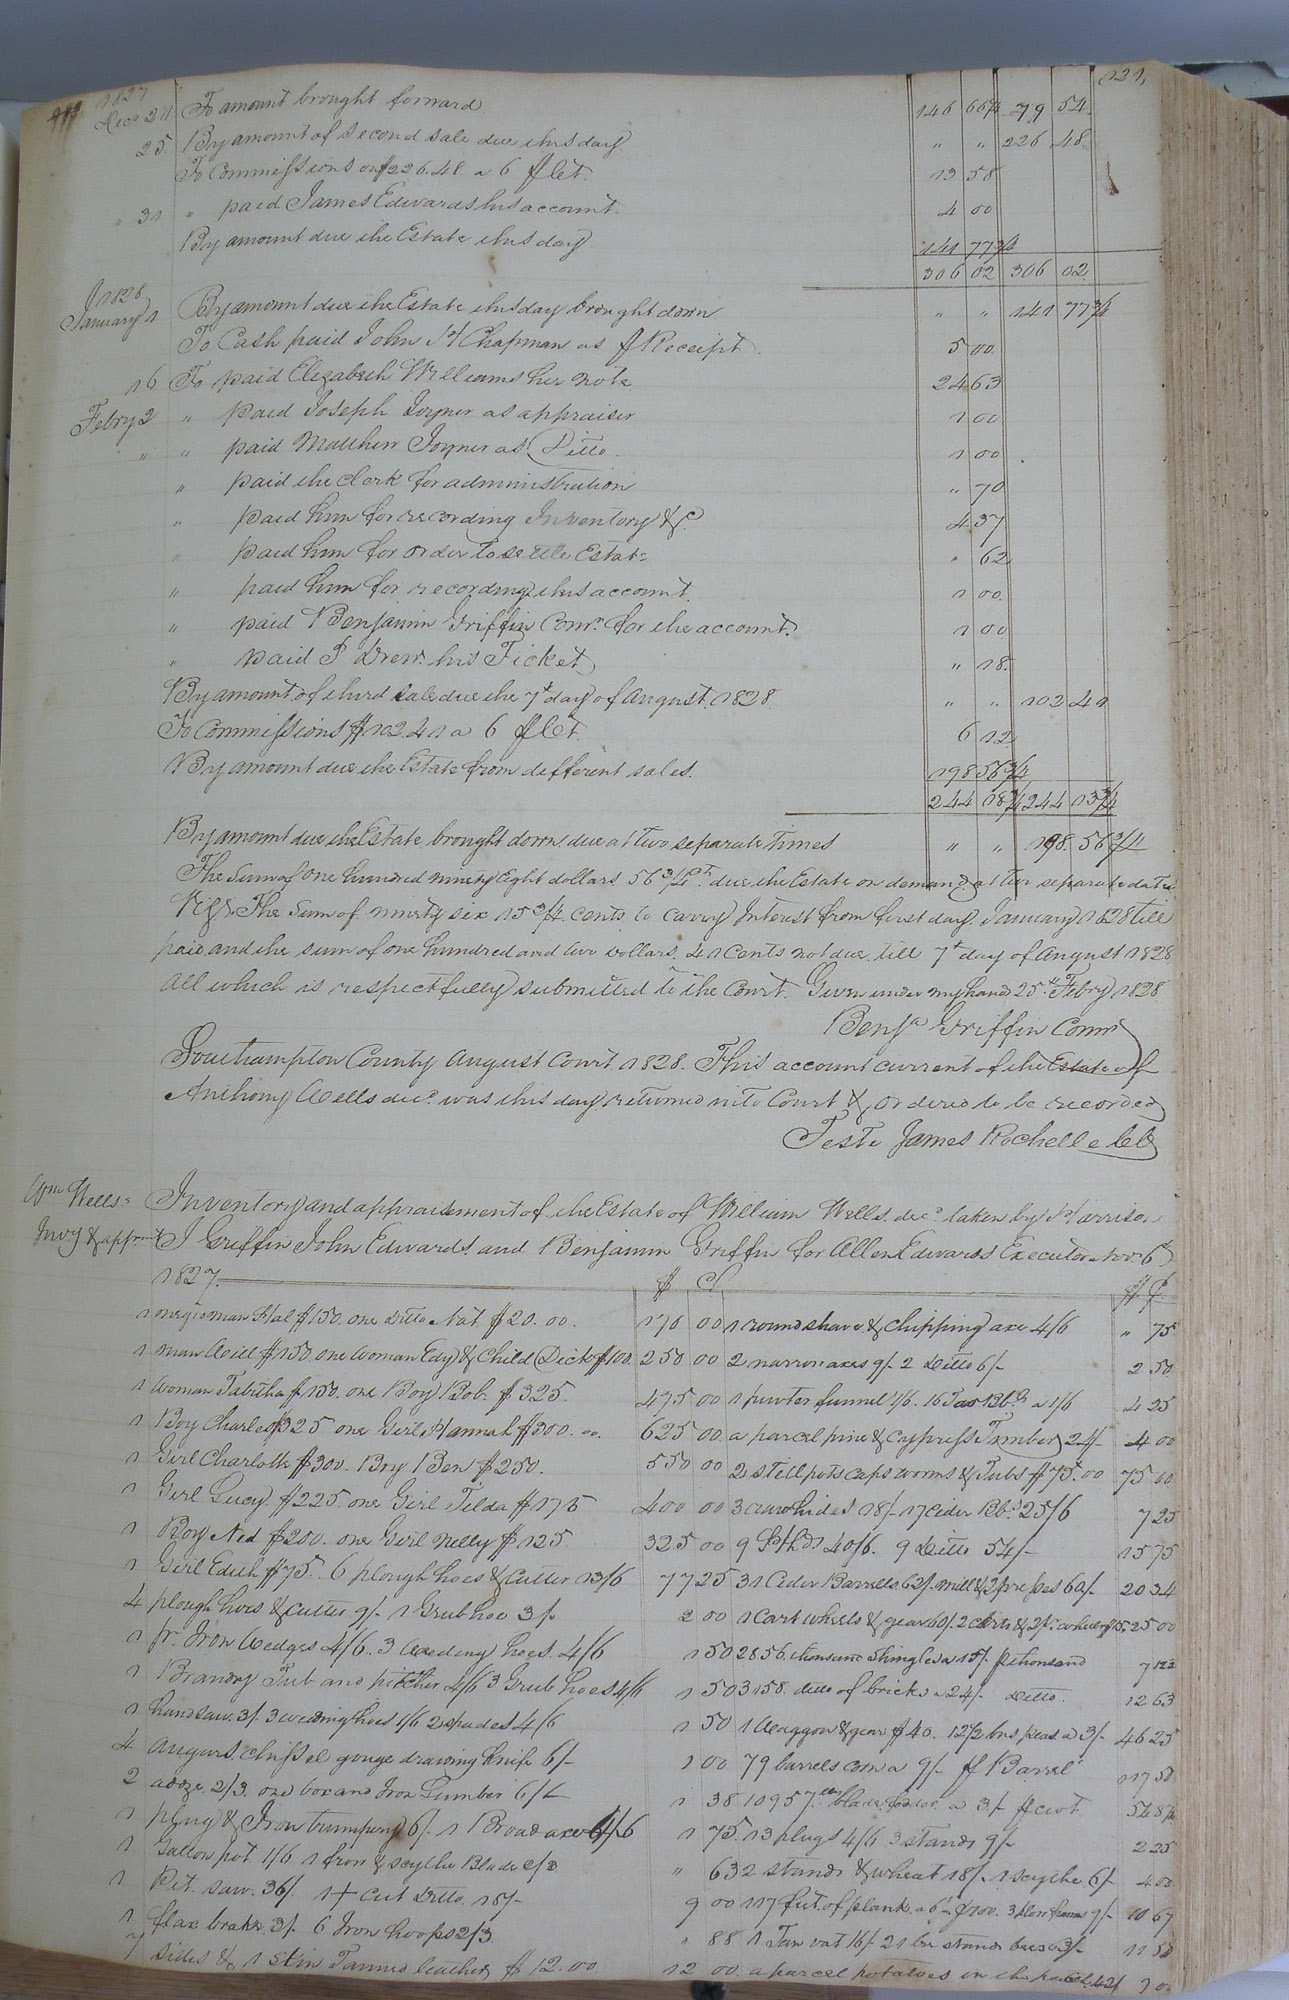 121,
1827
Decr 21 To amount brought forward 146 66¼ 79 54
25 By amount of second sale due this day " " 226 48
To Commissions on $226.48 a 6 ⅌ Ct. 13 58
" 31 " paid James Edwards his account 4 00
By amount due the Estate this day 141 77¾
306 02 306 02
1828
January 1 By amount due the Estate this day brought down " " 141 77¾
To Cash paid John H Chapman as ⅌ Receipt 5 00
16 To paid Elizabeth Williams her note 24 63
Febry 2 " paid Joseph Joyner as appraiser 1 00
" " paid Matthew Joyner as Ditto 1 00
" paid the Clerk for administration " 70
" paid him for recording Inventory &c 4 37
" paid him for order to settle Estate " 62
" paid him for recording this account 1 00
" paid Benjamin Griffin Comr. for the account. 1 00
" paid J Drew his Ticket " 18
By amount of third sale due the 7t day of August 1828 " " 102 41
To Commissions $102.41 a 6 ⅌ Ct. 6 12
By amount due the Estate from different sales. 198 56¾
244 18¾ 244 13¾
By amount due the Estate brought down due at two separate times " " 198. 56¾
The Sum of One hundred ninety Eight dollars 56¾ Cts. due the Estate on demand at two separate dates
The Sum of ninety six 15¾ Cents to carry Interest from first day January 1828 till
paid and the sum of one hundred and two dollars. 41 Cents not due till 7t day of August 1828
all which is respectfully submitted to the Court. Given under my hand 25th Febry 1828
Benja Griffin Comr
Southampton County August Court 1828. This account current of the Estate of
Anthony Wells decd was this day returned into Court & ordered to be recorded
Teste James Rochelle Clk
Wm Wells's
Invy & apprmt
Inventory and appraisement of the Estate of William Wells decd taken by Harrison
J Griffin John Edwards and Benjamin Griffin for Allen Edwards Executor Novr 6th
1827 $ Ct $ Ct
1 negro man Hal $150. one Ditto Nat $20.00. 170 00
1 man Will $150. one Woman Edy & Child Dick $100. 250 00
1 Woman Tabitha $150. one Boy Bob. $325. 475 00
1 Boy Charles $325 one Girl Hannah $300. 625 00
1 Girl Charlotte $300. Boy Ben $250. 550 00
1 Girl Lucy. $225. one Girl Tilda $175 400 00
1 Boy Ned $200. one Girl Nelly $125. 325 00
1 Girl Edith $75. 6 plough hoes & Cutter 13/6 77 25
4 plough hoes & Cutter 9/- 1 Grub hoe 3/- 2 00
1 pr. Iron Wedges 4/6. 3 Weeding hoes. 4/6 1 50
1 Brandy Tub and pitcher 4/6 3 Grub hoes 4/6 1 50
1 hand saw. 3/- 3 weeding hoes 1/6 2 spades 4/6 1 50
4 augurs. chissel gouge drawing Knife 6/- 1 00
2 adze. 2/3. one box and Iron Lumber 6/- 1 38
1 plug & Iron trumpery 6/. 1 Broad axe 4/6 1 75
1 Gallon pot 1/6 1 Iron & scythe Blade 2/3 " 63
1 Pit. Saw. 36/. 1 + cut Ditto. 18/- 9 00
1 flax brake. 3/- 6 Iron hoops 2/3 " 88
7 sides & 1 skin Tanned leather $12.00. 12 00
1 round shave & chipping axe 4/6 " 75
2 narrow axes 9/- 2 Ditto 6/- 2 50
1 pewter funnel 1/6. 16 Tar Bbls a 1/6 4 25
a parcel pine & cypress Timber 24/- 4 00
2 still pots caps worms & Tubs $75.00 75 00
3 raw hides 18/- 17 Cider Bbls 25/6 7 25
9 Hhds 40/6. 9 Ditto 54/- 15 75
31 Cider Barrells 62/- mill & 2 presses 60/- 20 34
1 Cart wheels & gear 60/. 2 carts & 2 pr. wheels $15. 25 00
2856. thousand Shingles a 15/. ⅌ thousand 7 12½
3158. ditto of bricks a 24/- Ditto. 12 63
1 Waggon & gear $40. 12½ bus peas. a 3/- 46 25
79 barrels corn a 9/- ⅌ Barrel 117 50
10957 lbs blade fodder a 3/- ⅌ cwt 54 87½
13 plugs 4/6 3 stands 9/- 2 25
2 stands & wheat 18/- 1 scythe 6/- 4 00
117 feet of plank a 6/- ⅌ 100. 3 9/- 10 67
1 Tan vat 16/- 21 bee stands bees 3/- 11 50
a parcel potatoes in the patch 42/ 7 00